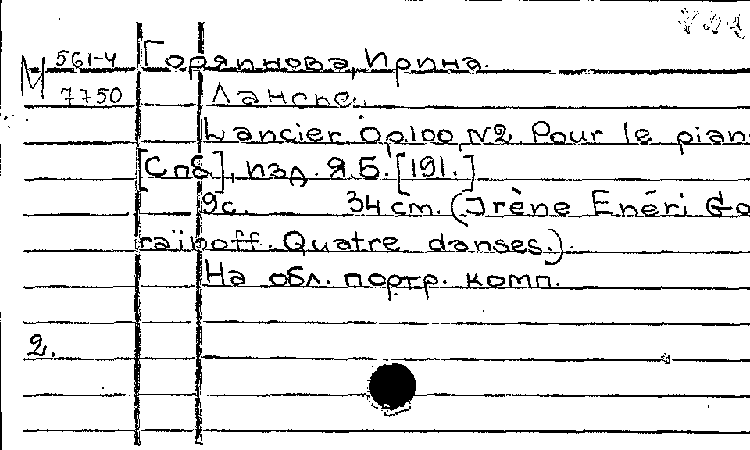 М 561-4 Горяинова, Ирина.
7750 Лансье.
Lancier. Op100, N2. Pour le pian
[Спб.], изд. Я.Б. [191.]
9с. 34 cm. (Irène Enéri Go
raïnoff. Quatre danses.).
На обл. портр. комп.
2.